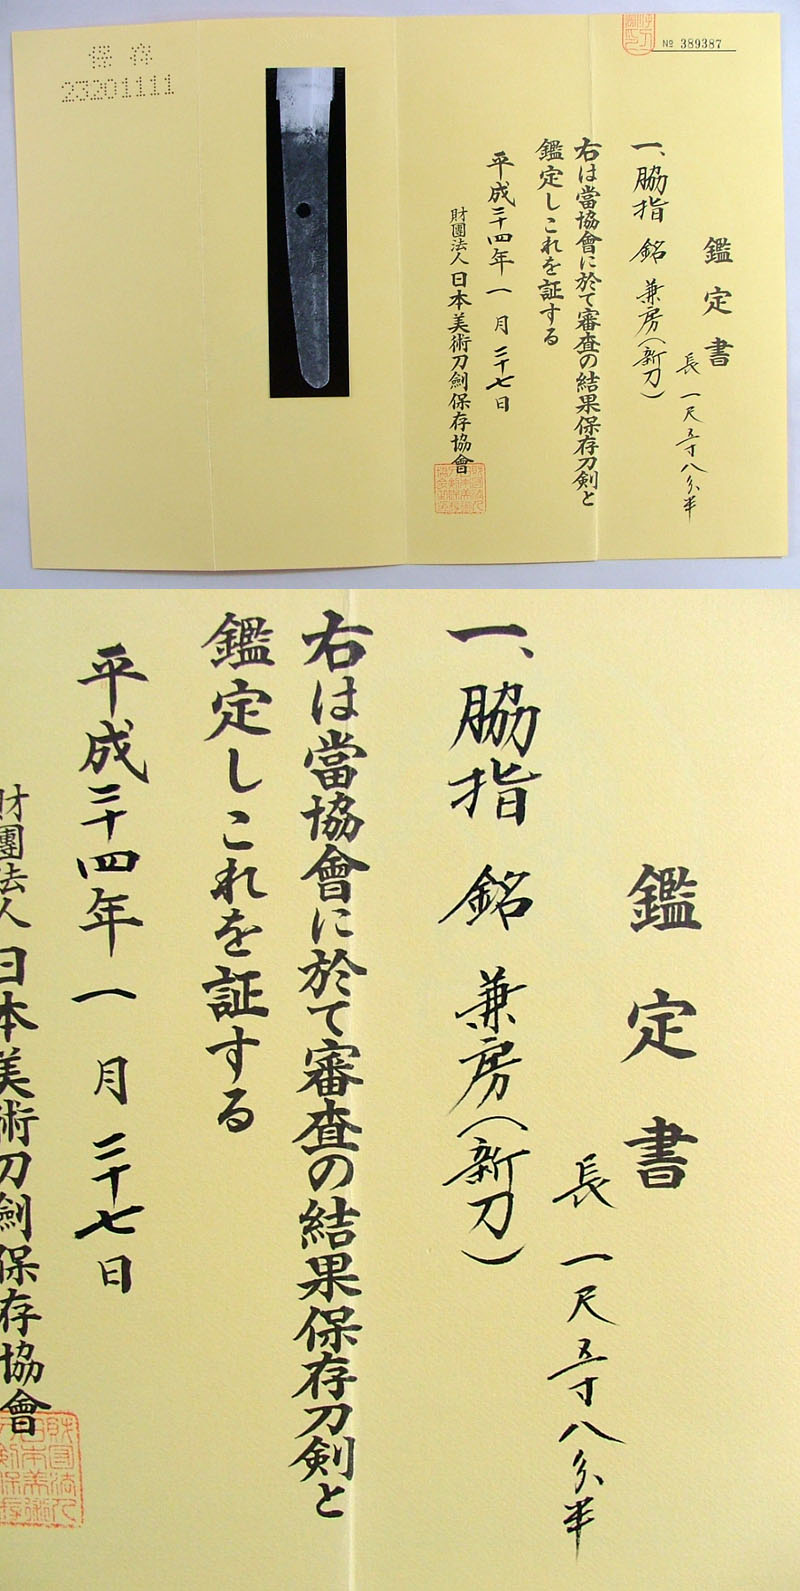 保存
23201111
№ 389387
鑑定書
長 一尺五寸八分半
一、脇指 銘 兼房(新刀)
右は當協會に於て審査の結果保存刀剣と
鑑定しこれを証する
平成二十四年一月二十七日
財團法人日本美術刀劍保存協會
鑑定書
長 一尺五寸八分半
一、脇指 銘 兼房(新刀)
右は當協會に於て審査の結果保存刀剣と
鑑定しこれを証する
平成二十四年一月二十七日
財團法人日本美術刀劍保存協會